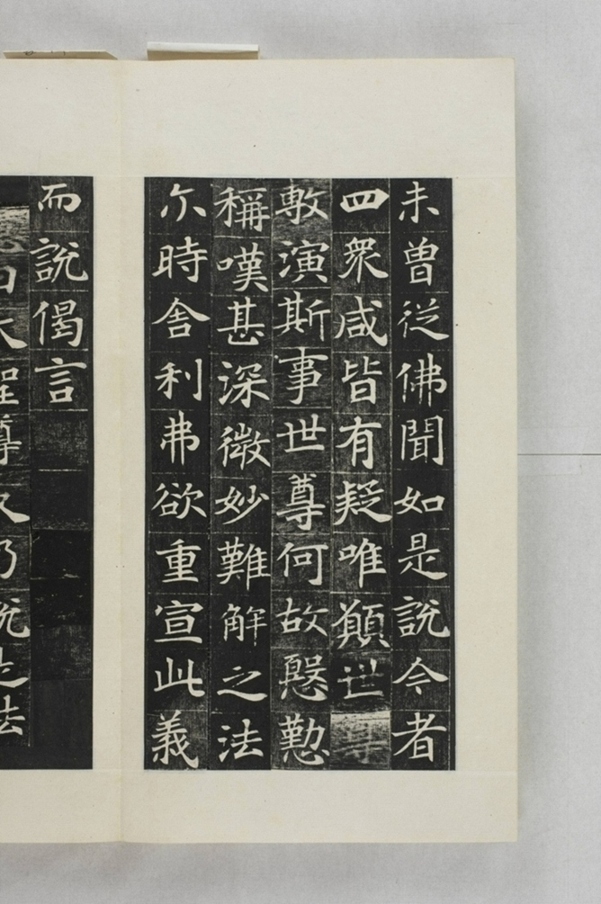 未曽從佛聞如是說今者
四衆咸皆有疑唯願世尊
敷演斯事世尊何故慇懃
稱嘆甚深微妙難解之法
尒時舎利弗欲重宣此義
而說偈言
日大聖尊久乃說是法